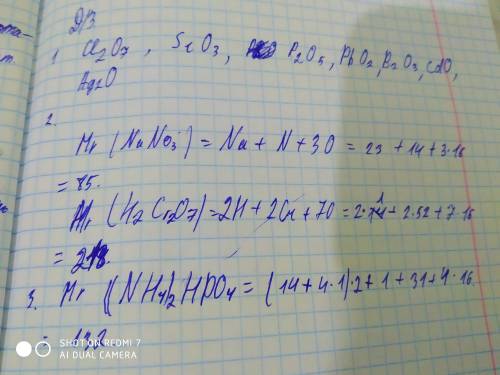 Д/З
1. Cl2O7, S2O3, P2O5, PbO2, B2O3, CdO,
Ag2O
2.
Mr (NaNO3) = Na + N + 3O = 23 + 14 + 3·16
= 85.
Mr (H2Cr2O7) = 2H + 2Cr + 7O = 2·1 + 2·52 + 7·16
= 218.
3. Mr ((NH4)2HPO4 = (14 + 4·1)·2 + 1 + 31 + 4·16
= 132
SHOT ON REDMI 7
AI DUAL CAMERA